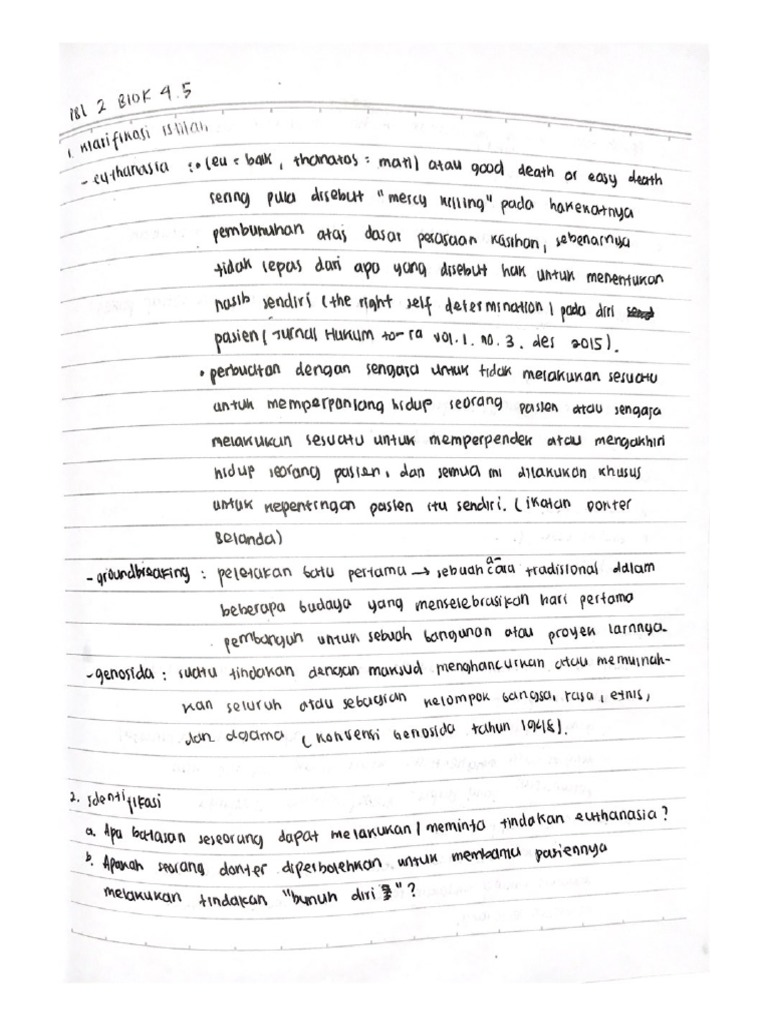 PBL 2 BLOK 4.5
1. Klarifikasi Istilah
- euthanasia : • (eu = baik, thanatos = mati) atau good death or easy death
sering pula disebut "mercy killing" pada hakekatnya
pembunuhan atas dasar perasaan kasihan, sebenarnya
tidak lepas dari apa yang disebut hak untuk menentukan
nasib sendiri (the right self determination) pada diri
pasien (Jurnal Hukum to-ra vol.1. no.3. des 2015).
• perbuatan dengan sengaja untuk tidak melakukan sesuatu
untuk memperpanjang hidup seorang pasien atau sengaja
melakukan sesuatu untuk memperpendek atau mengakhiri
hidup seorang pasien, dan semua ini dilakukan khusus
untuk kepentingan pasien itu sendiri. (ikatan Dokter
Belanda)
- groundbreaking : peletakan batu pertama → sebuah acara tradisional dalam
beberapa budaya yang menselebrasikan hari pertama
pembangun untuk sebuah bangunan atau proyek lainnya.
- genosida : suatu tindakan dengan maksud menghancurkan atau memusnah-
kan seluruh atau sebagian kelompok bangsa, rasa, etnis,
dan agama (Konvensi Genosida tahun 1948).
2. Identifikasi
a. Apa batasan seseorang dapat melakukan/meminta tindakan euthanasia?
b. Apakah seorang dokter diperbolehkan untuk membantu pasiennya
melakukan tindakan "bunuh diri"?